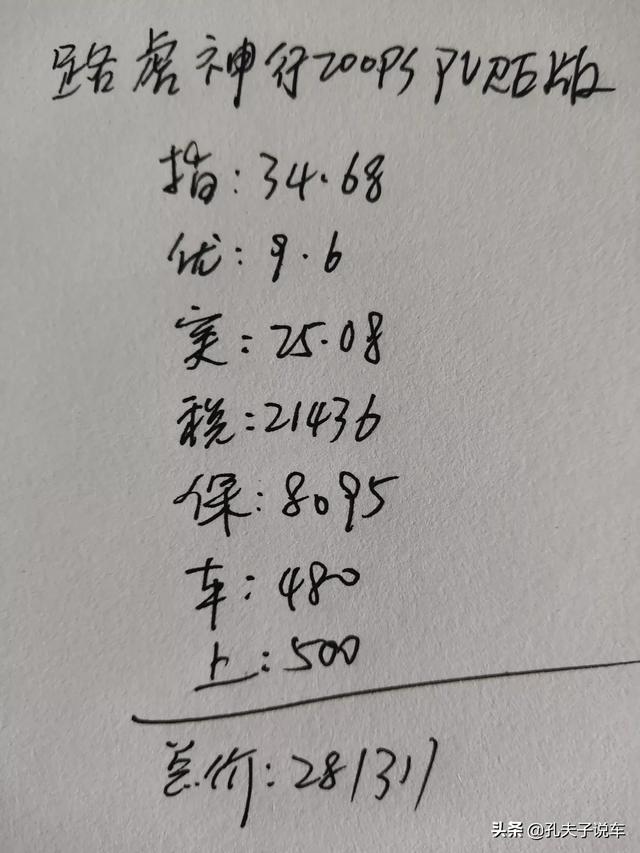 路虎神行200PS PURE版
指:34.68
优:9.6
实:25.08
税:21436
保:8095
车:480
上:500
总价:281311
头条 @孔夫子说车